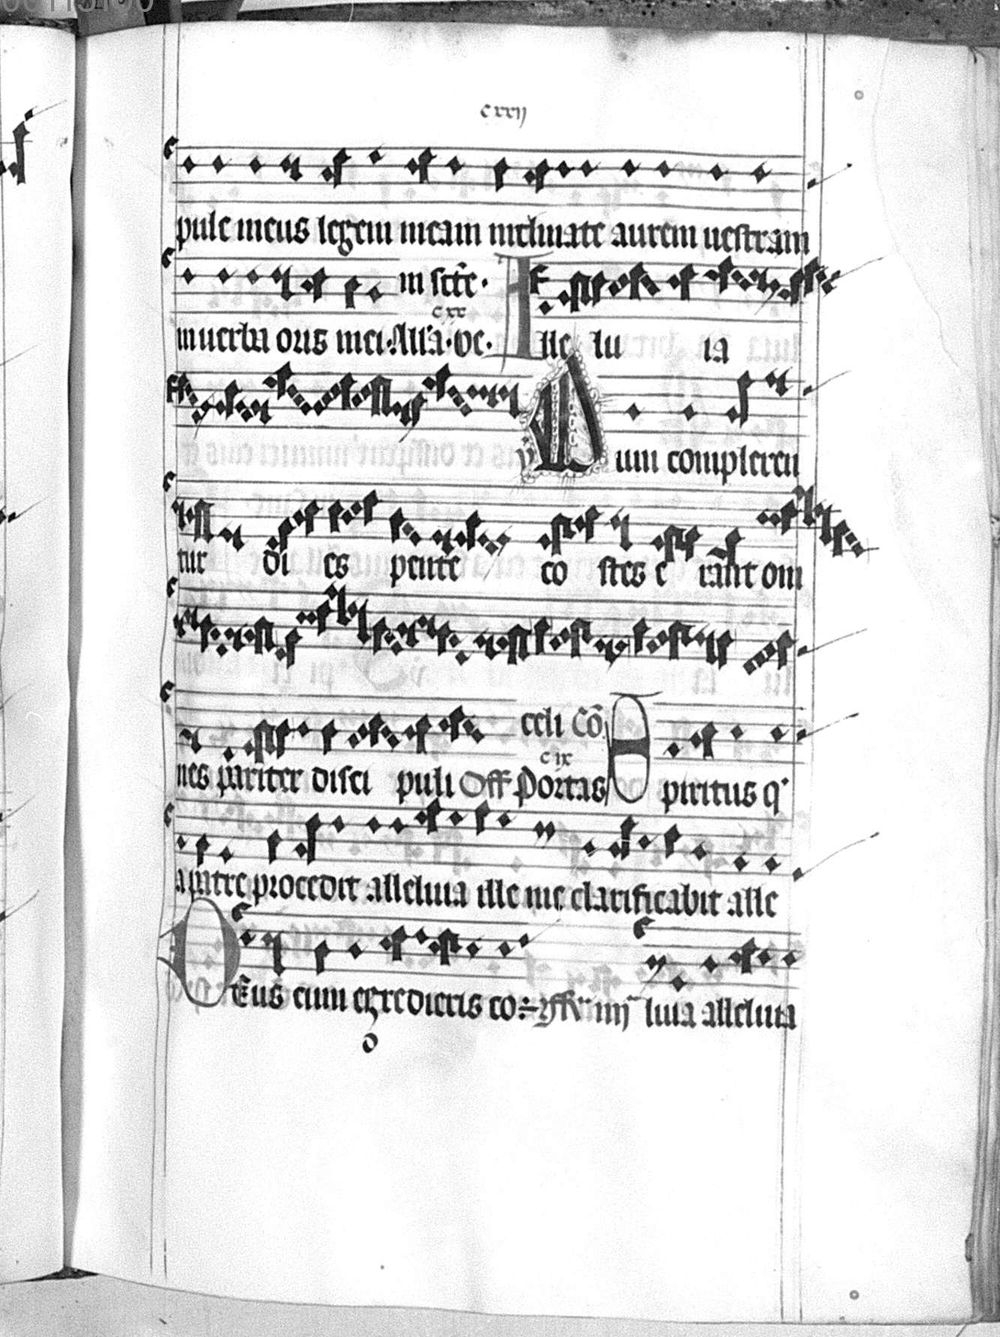 cxxij
pule meus legem meam inclinate aurem uestram
in uerba oris mei. All'a. Ve. in sc̄tē. Alle lu ia
cxx
V Cum compleren
tur di es pente co stes e rant om
nes pariter disci puli Off Portas celi Cō Spiritus q'
c ix
a patre procedit alleluia ille me clarificabit alle
Deus cum egredieris co luia alleluia